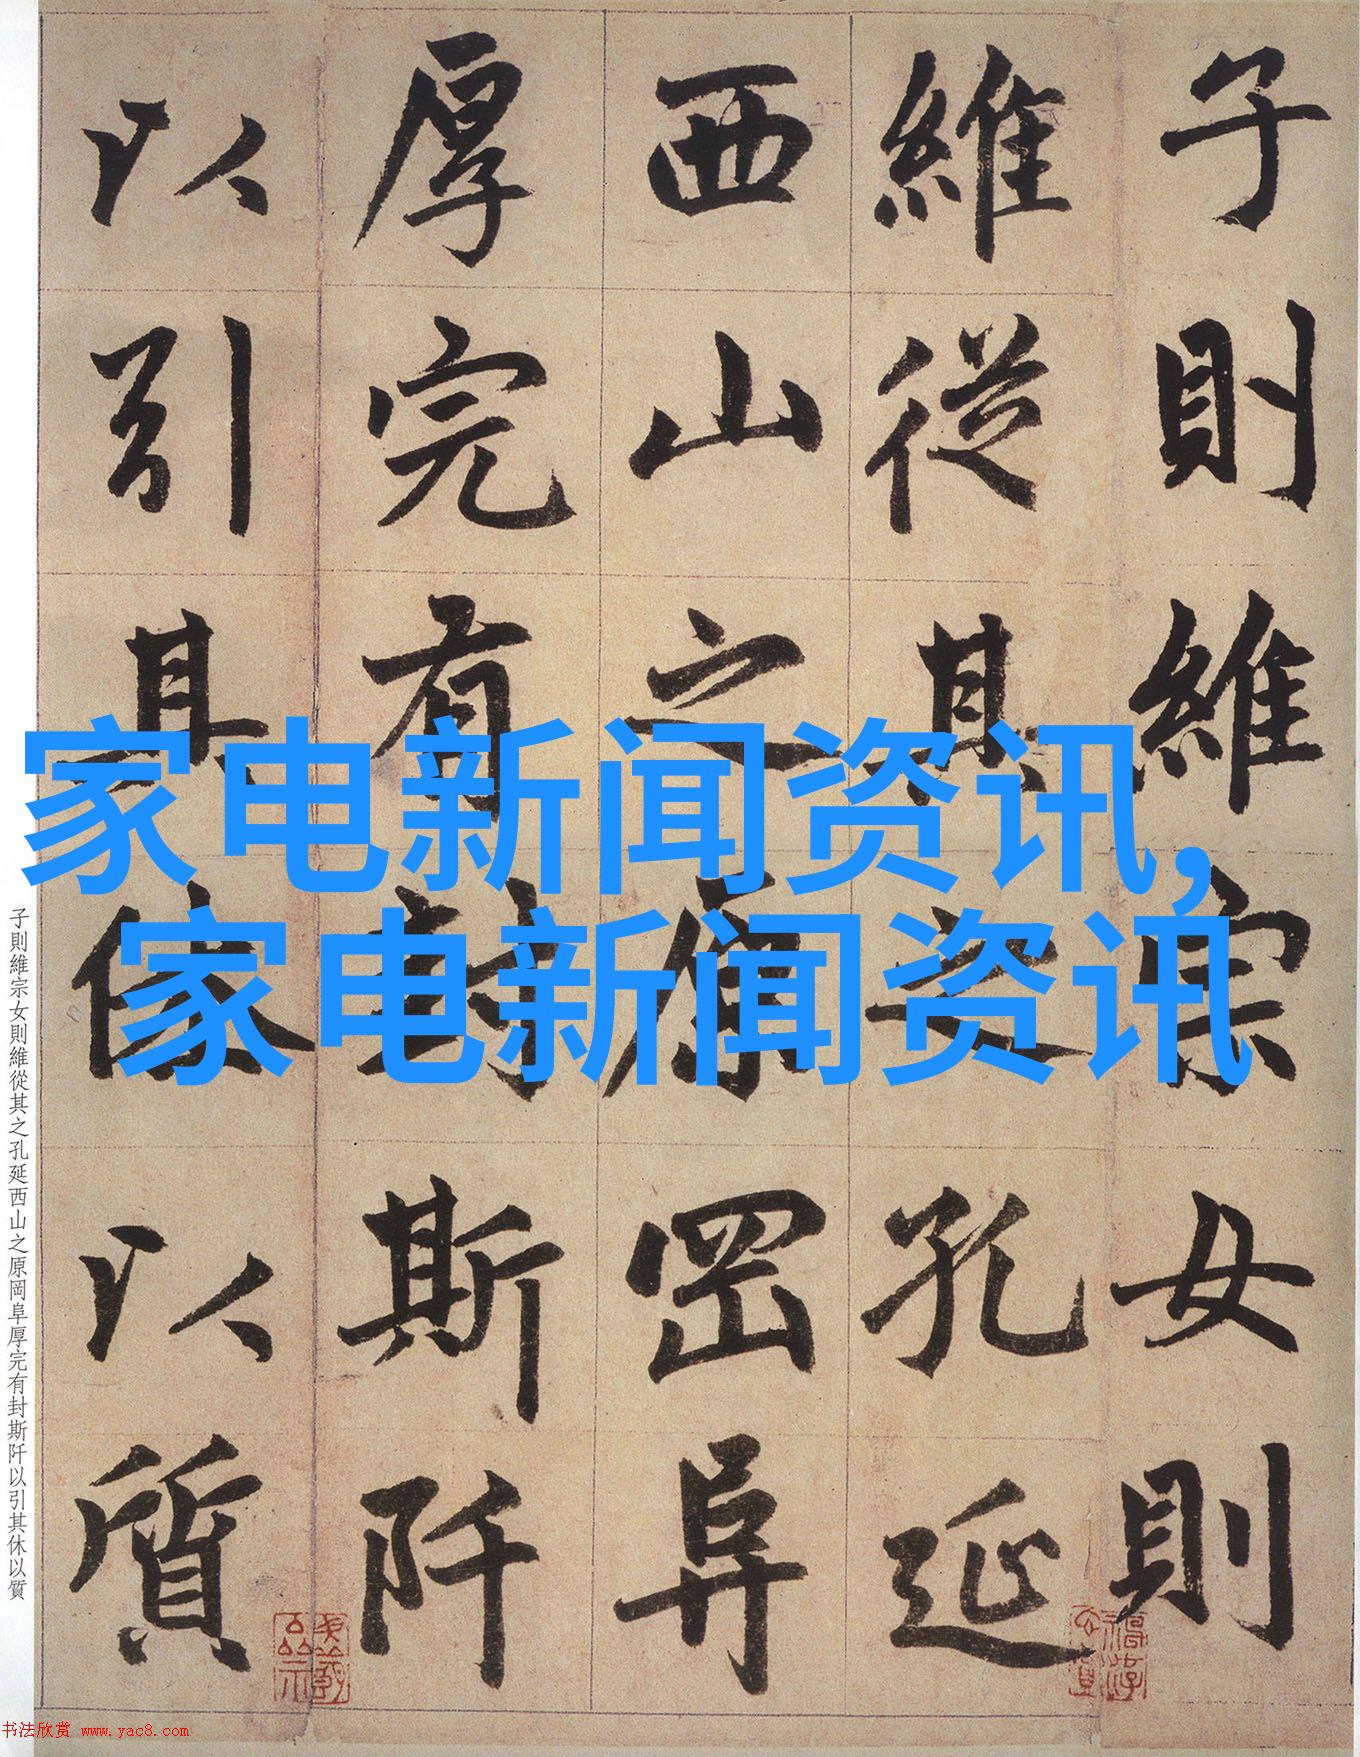 子則維宗女則
維從其之孔延
西山之原岡阜
厚完有封斯阡
以引其休以質
家电新闻资讯,
家电新闻资讯
子則維宗女則維從其之孔延西山之原岡阜厚完有封斯阡以引其休以質
书法欣赏 www.yac8.com